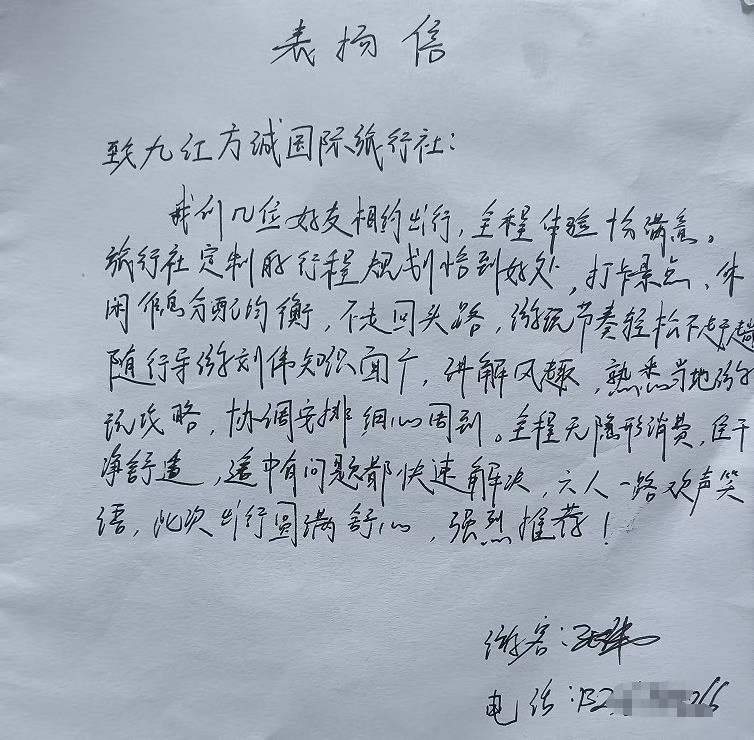 表扬信
致九江方诚国际旅行社：
我们几位好友相约出行，全程体验十分满意。
旅行社定制的行程规划恰到好处，打卡景点、休
闲作息分配均衡，不走回头路，游玩节奏轻松不赶趟
随行导游刘伟知识面广，讲解风趣，熟悉当地游
玩攻略，协调安排细心周到。全程无隐形消费，住干
净舒适，途中有问题都快速解决，六人一路欢声笑
语，此次出行圆满舒心，强烈推荐！
游客：
电话：132